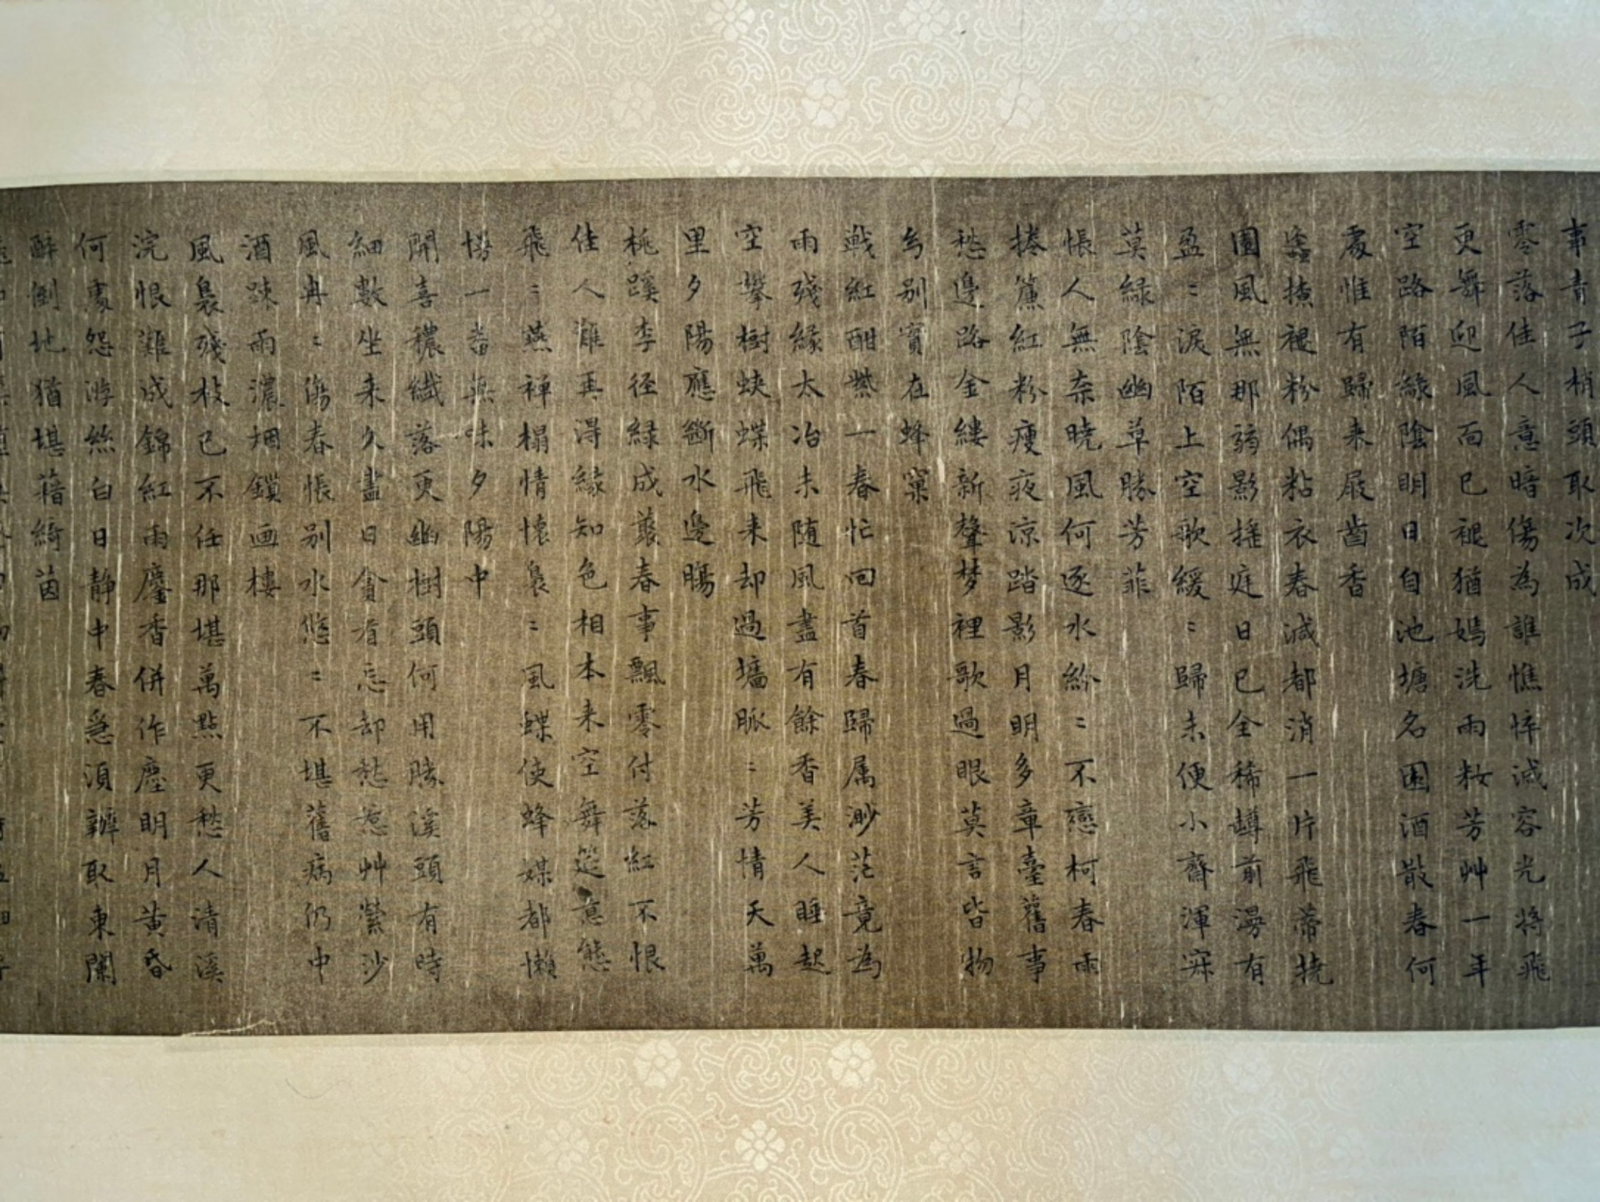 事青子梢頭取次成
零落佳人意暗傷為誰憔悴減容光將飛
更舞迎風面已褪猶嫣洗雨妝芳艸一年
空路陌綠陰明日自池塘名園酒散春何
處惟有歸來屐齒香
蜂撩褪粉偶粘衣春減都消一片飛蒂撓
園風無那弱影搖庭日已全稀罇前漫有
盈〻淚陌上空歌緩〻歸未便小齋渾寂
莫綠陰幽草勝芳菲
悵人無奈曉風何逐水紛〻不戀柯春雨
捲簾紅粉瘦夜涼踏影月明多章臺舊事
愁邊路金縷新聲梦裡歌過眼莫言皆物
幻別實在蜂窠
戰紅酣㷊一春忙回首春歸属渺茫竟為
雨殘緣太冶未随風盡有餘香美人睡起
空攀樹蛺蝶飛来却過墻脈〻芳情天萬
里夕陽應斷水邊腸
桃蹊李徑綠成叢春事飄零付落紅不恨
佳人難再淂緣知色相本来空舞筵意態
飛〻燕禪榻情懷裊〻風蝶使蜂媒都懶
慢一番無味夕陽中
開喜穠纖落更幽樹頭何用勝溪頭有時
細數坐来久盡日貪看忘却愁惹艸縈沙
風冉〻傷春悵別水悠〻不堪舊病仍中
酒踈雨濃烟鎖画樓
風裊殘枝已不任那堪萬點更愁人清溪
浣恨難成錦紅雨麈香併作塵明月黄昏
何處怨游絲白日静中春急湏辦取東闌
醉倒地猶堪藉綺茵